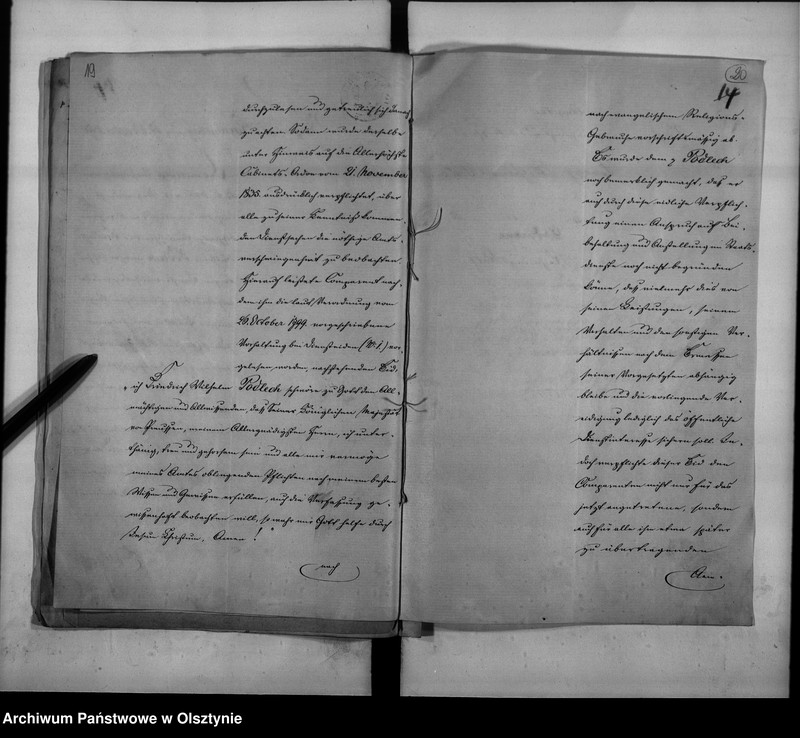 19
durchzulesen und getreulich sich danach
zu achten. Sodann wurde derselbe
unter Hinweis auf die Allerhöchste
Cabinets-Ordre vom 21. November
1835 ausdrücklich verpflichtet, über
alle zu seiner Kenntniß kommen-
den Dienstsachen die nöthige Amts-
verschwiegenheit zu beobachten.
Hierauf leistete Comparent nach-
dem ihm die laut Verordnung vom
26. October 1799 vorgeschriebene
Vorhaltung bei Diensteiden (N. 1.) vor-
gelesen worden, nachstehenden Eid:
„ich Friedrich Wilhelm Podlech schwöre zu Gott dem All-
mächtigen und Allwissenden, daß Seiner Königlichen Majestät
von Preußen, meinem Allergnädigsten Herrn, ich unter-
thänig, treu und gehorsam sein und alle mir vermöge
meines Amtes obliegenden Pflichten nach meinem besten
Wissen und Gewissen erfüllen, auch die Verfassung ge-
wissenhaft beobachten will, so wahr mir Gott helfe durch
Jesum Christum, Amen!“
nach
20
14
nach evangelischem Religions-
Gebrauche vorschriftsmäßig ab.
Es wurde dem p Podlech
noch bemerklich gemacht, daß er
auch durch diese eidliche Verpflich-
tung einen Anspruch auf Bei-
behaltung und Anstellung im Staats-
dienste noch nicht begründen
könne, daß vielmehr dies von
seinen Leistungen, seinem
Verhalten und den sonstigen Ver-
hältnissen nach dem Ermessen
seiner Vorgesetzten abhängig
bleibe und die vorliegende Ver-
eidigung lediglich das öffentliche
Dienstinteresse sichern soll. Je-
doch verpflichte dieser Eid den
Comparenten nicht nur für das
jetzt angetretene, sondern
auch für alle ihm etwa später
zu übertragenden
Aem-
Archiwum Państwowe w Olsztynie